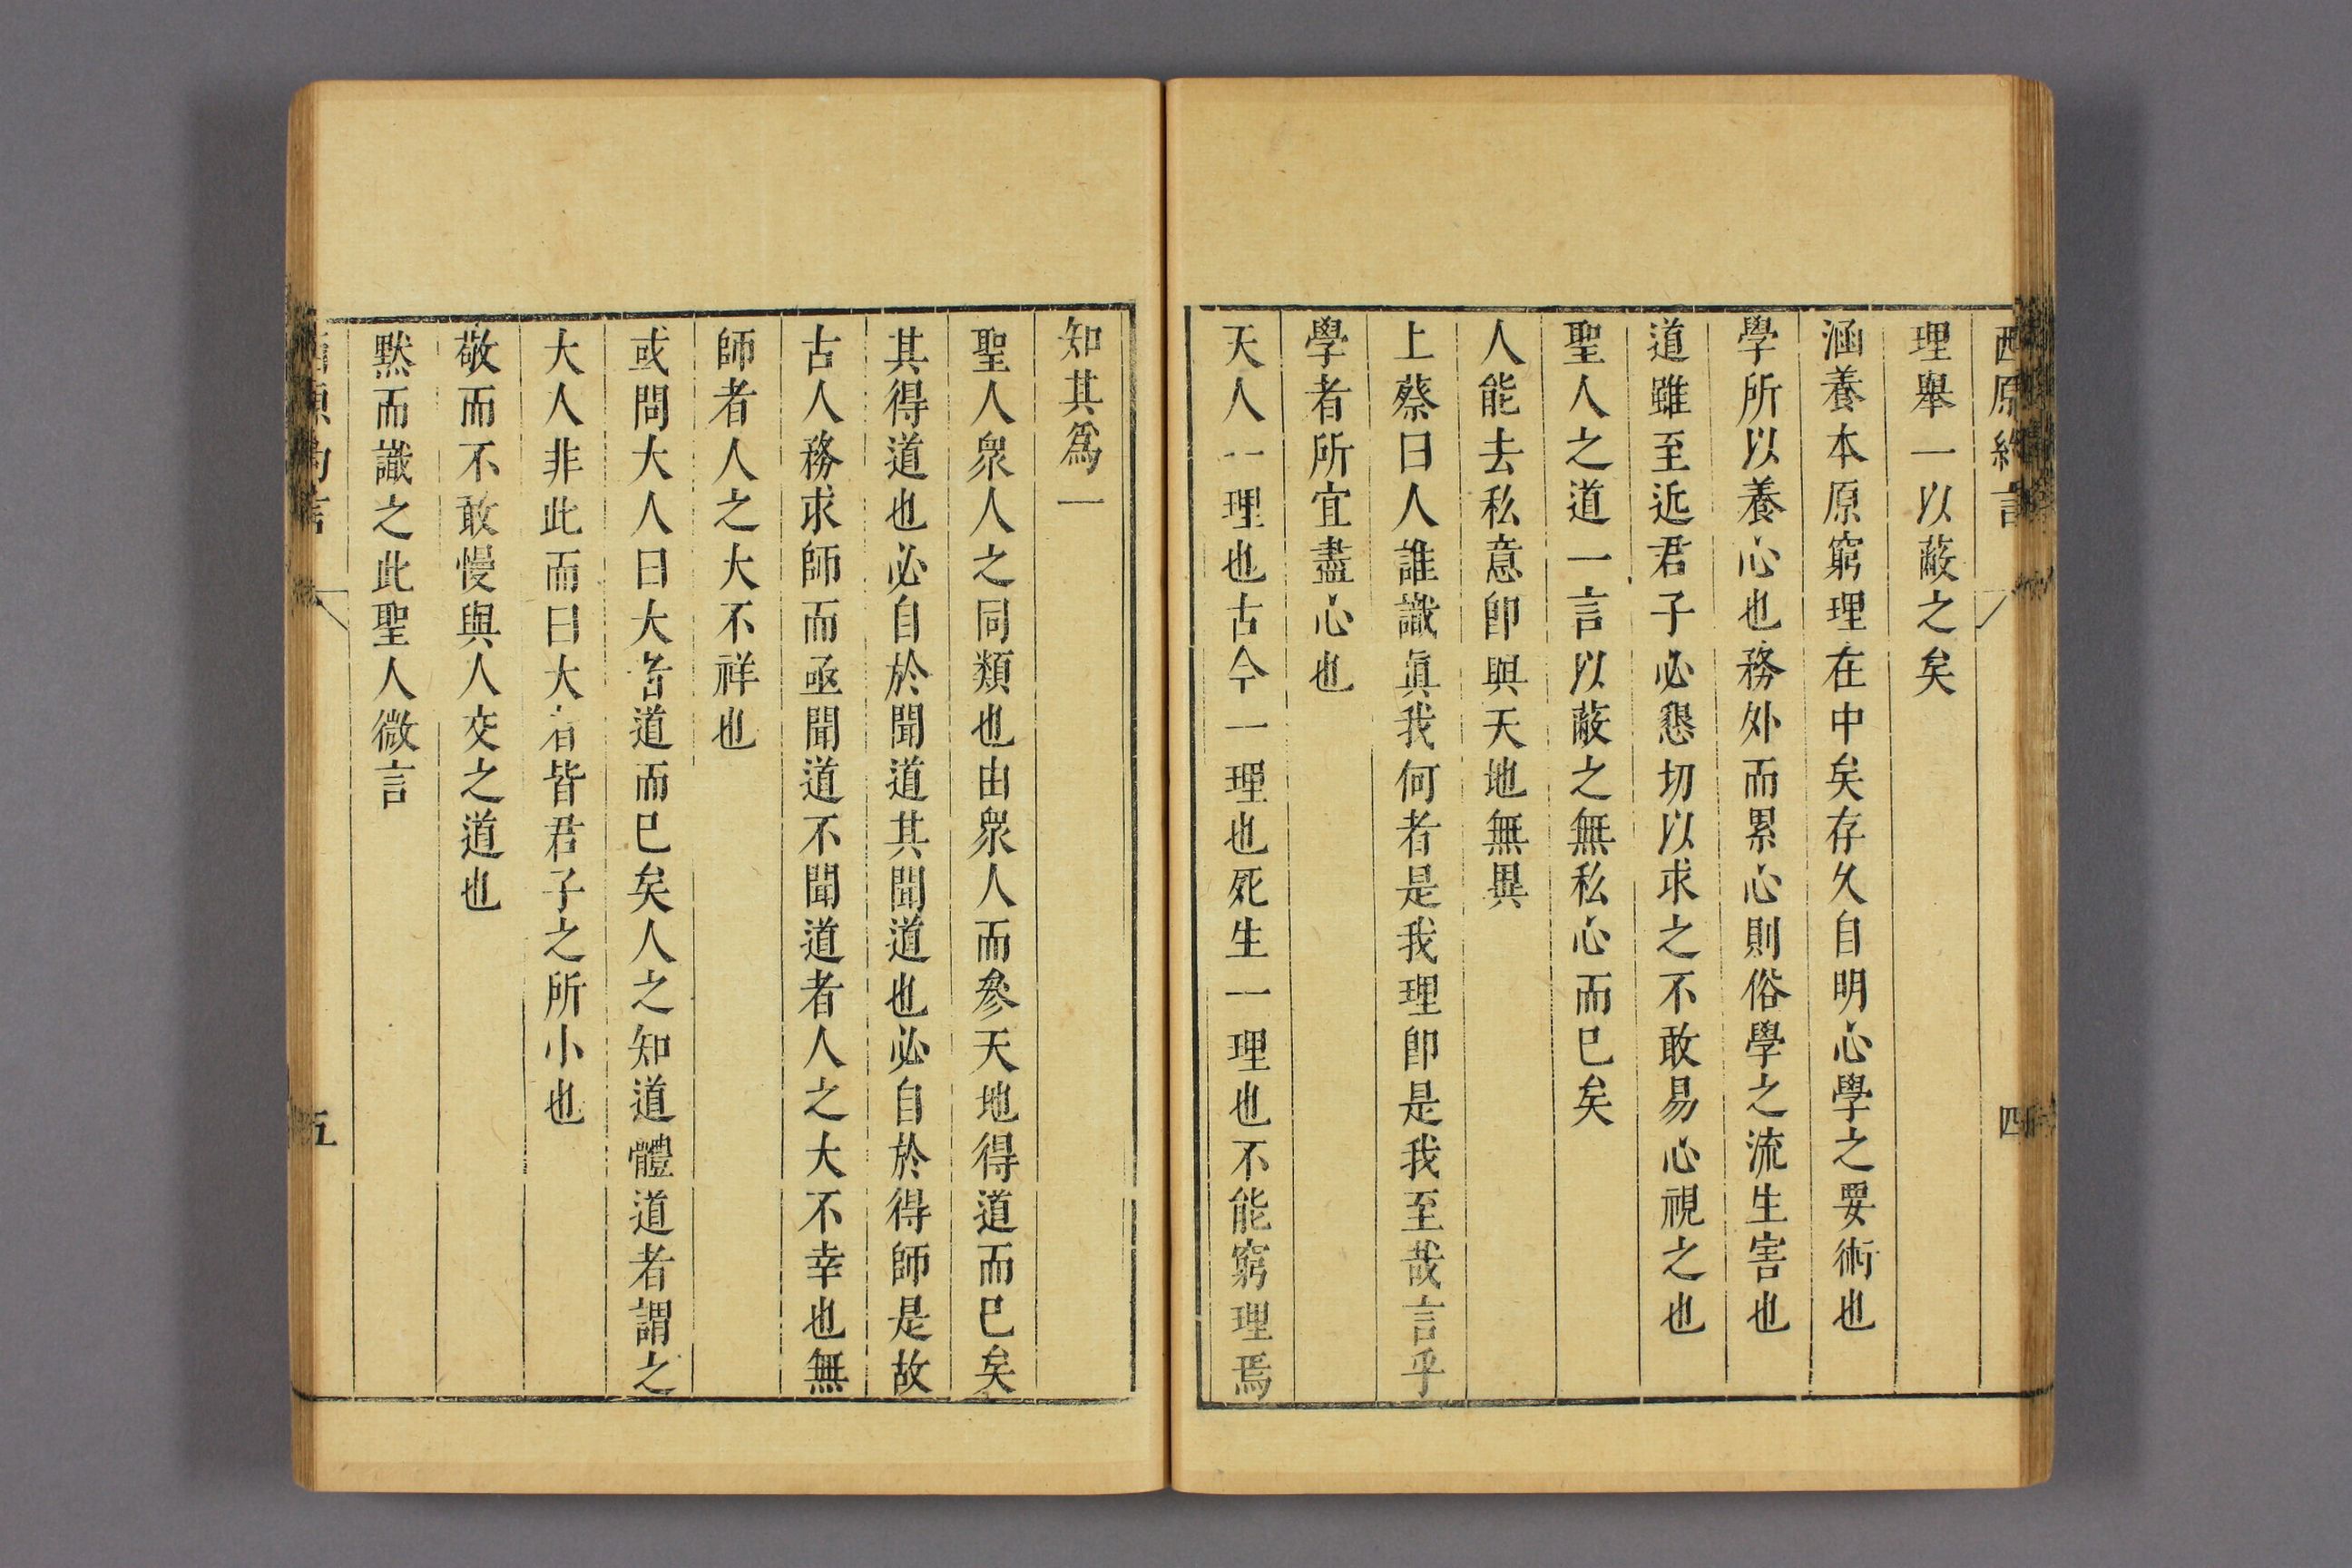 西原約言
四
理舉一以蔽之矣
涵養本原窮理在中矣存久自明心學之要術也
學所以養心也務外而累心則俗學之流生害也
道雖至近君子必懇切以求之不敢易心視之也
聖人之道一言以蔽之無私心而已矣
人能去私意卽與天地無異
上蔡曰人誰識眞我何者是我理卽是我至哉言乎
學者所宜盡心也
天人一理也古今一理也死生一理也不能窮理焉
知其爲一
聖人衆人之同類也由衆人而參天地得道而已矣
其得道也必自於聞道其聞道也必自於得師是故
古人務求師而亟聞道不聞道者人之大不幸也無
師者人之大不祥也
或問大人曰大者道而已矣人之知道體道者謂之
大人非此而曰大者皆君子之所小也
敬而不敢慢與人交之道也
默而識之此聖人微言
西原約言
五